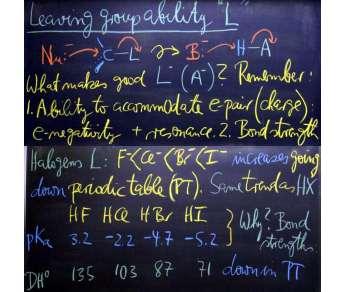 Leaving group ability "L"
Nu:⁻ C-L B:⁻ H-A
What makes good L⁻ (A⁻)? Remember:
1. Ability to accommodate e-pair (charge):
e-negativity + resonance. 2. Bond strength
Halogens L: F⁻<Cl⁻<Br⁻<I⁻ increases going
down periodic table (PT). Same trend as HX
HF HCl HBr HI
pKa 3.2 -2.2 -4.7 -5.2
Why? Bond
strengths
DH° 135 103 87 71 down in PT